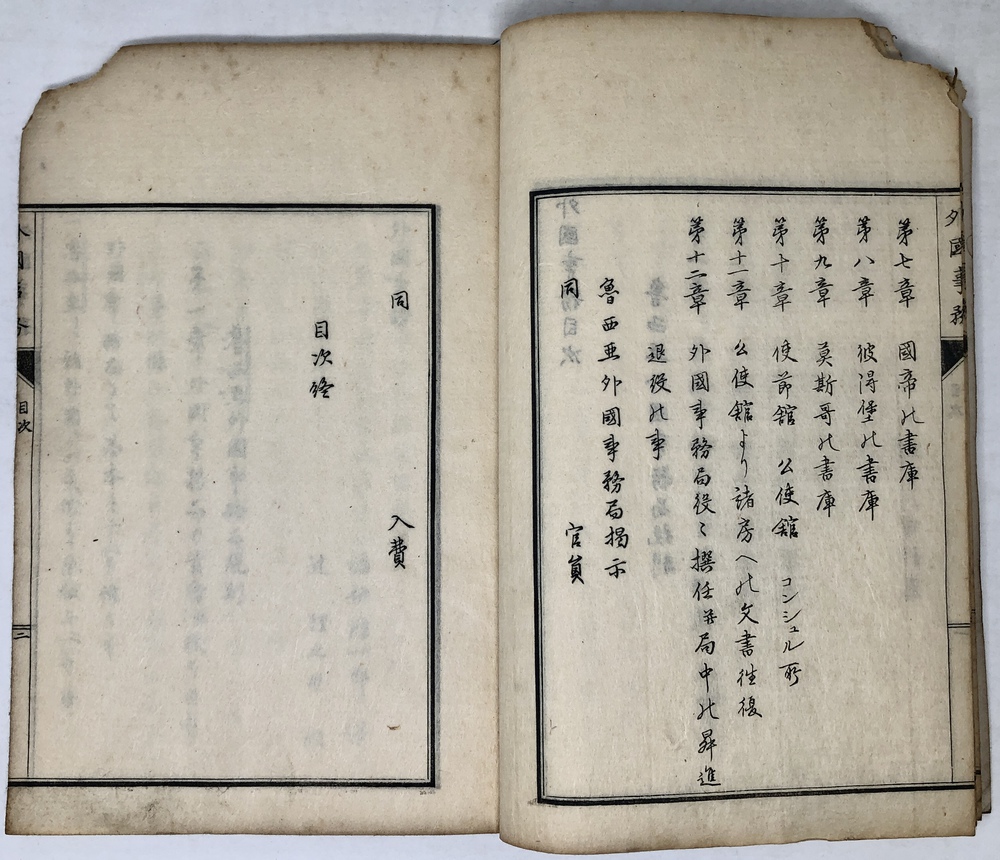 外國事務
第七章 國帝の書庫
第八章 彼得堡の書庫
第九章 莫斯哥の書庫
第十章 使節館 公使館 コンシュル所
第十一章 公使館より諸房への文書往復
第十二章 外國事務局役々撰任并局中の昇進
退役の事
魯西亜外國事務局掲示
同 官員
同 入費
目次終
目次
二